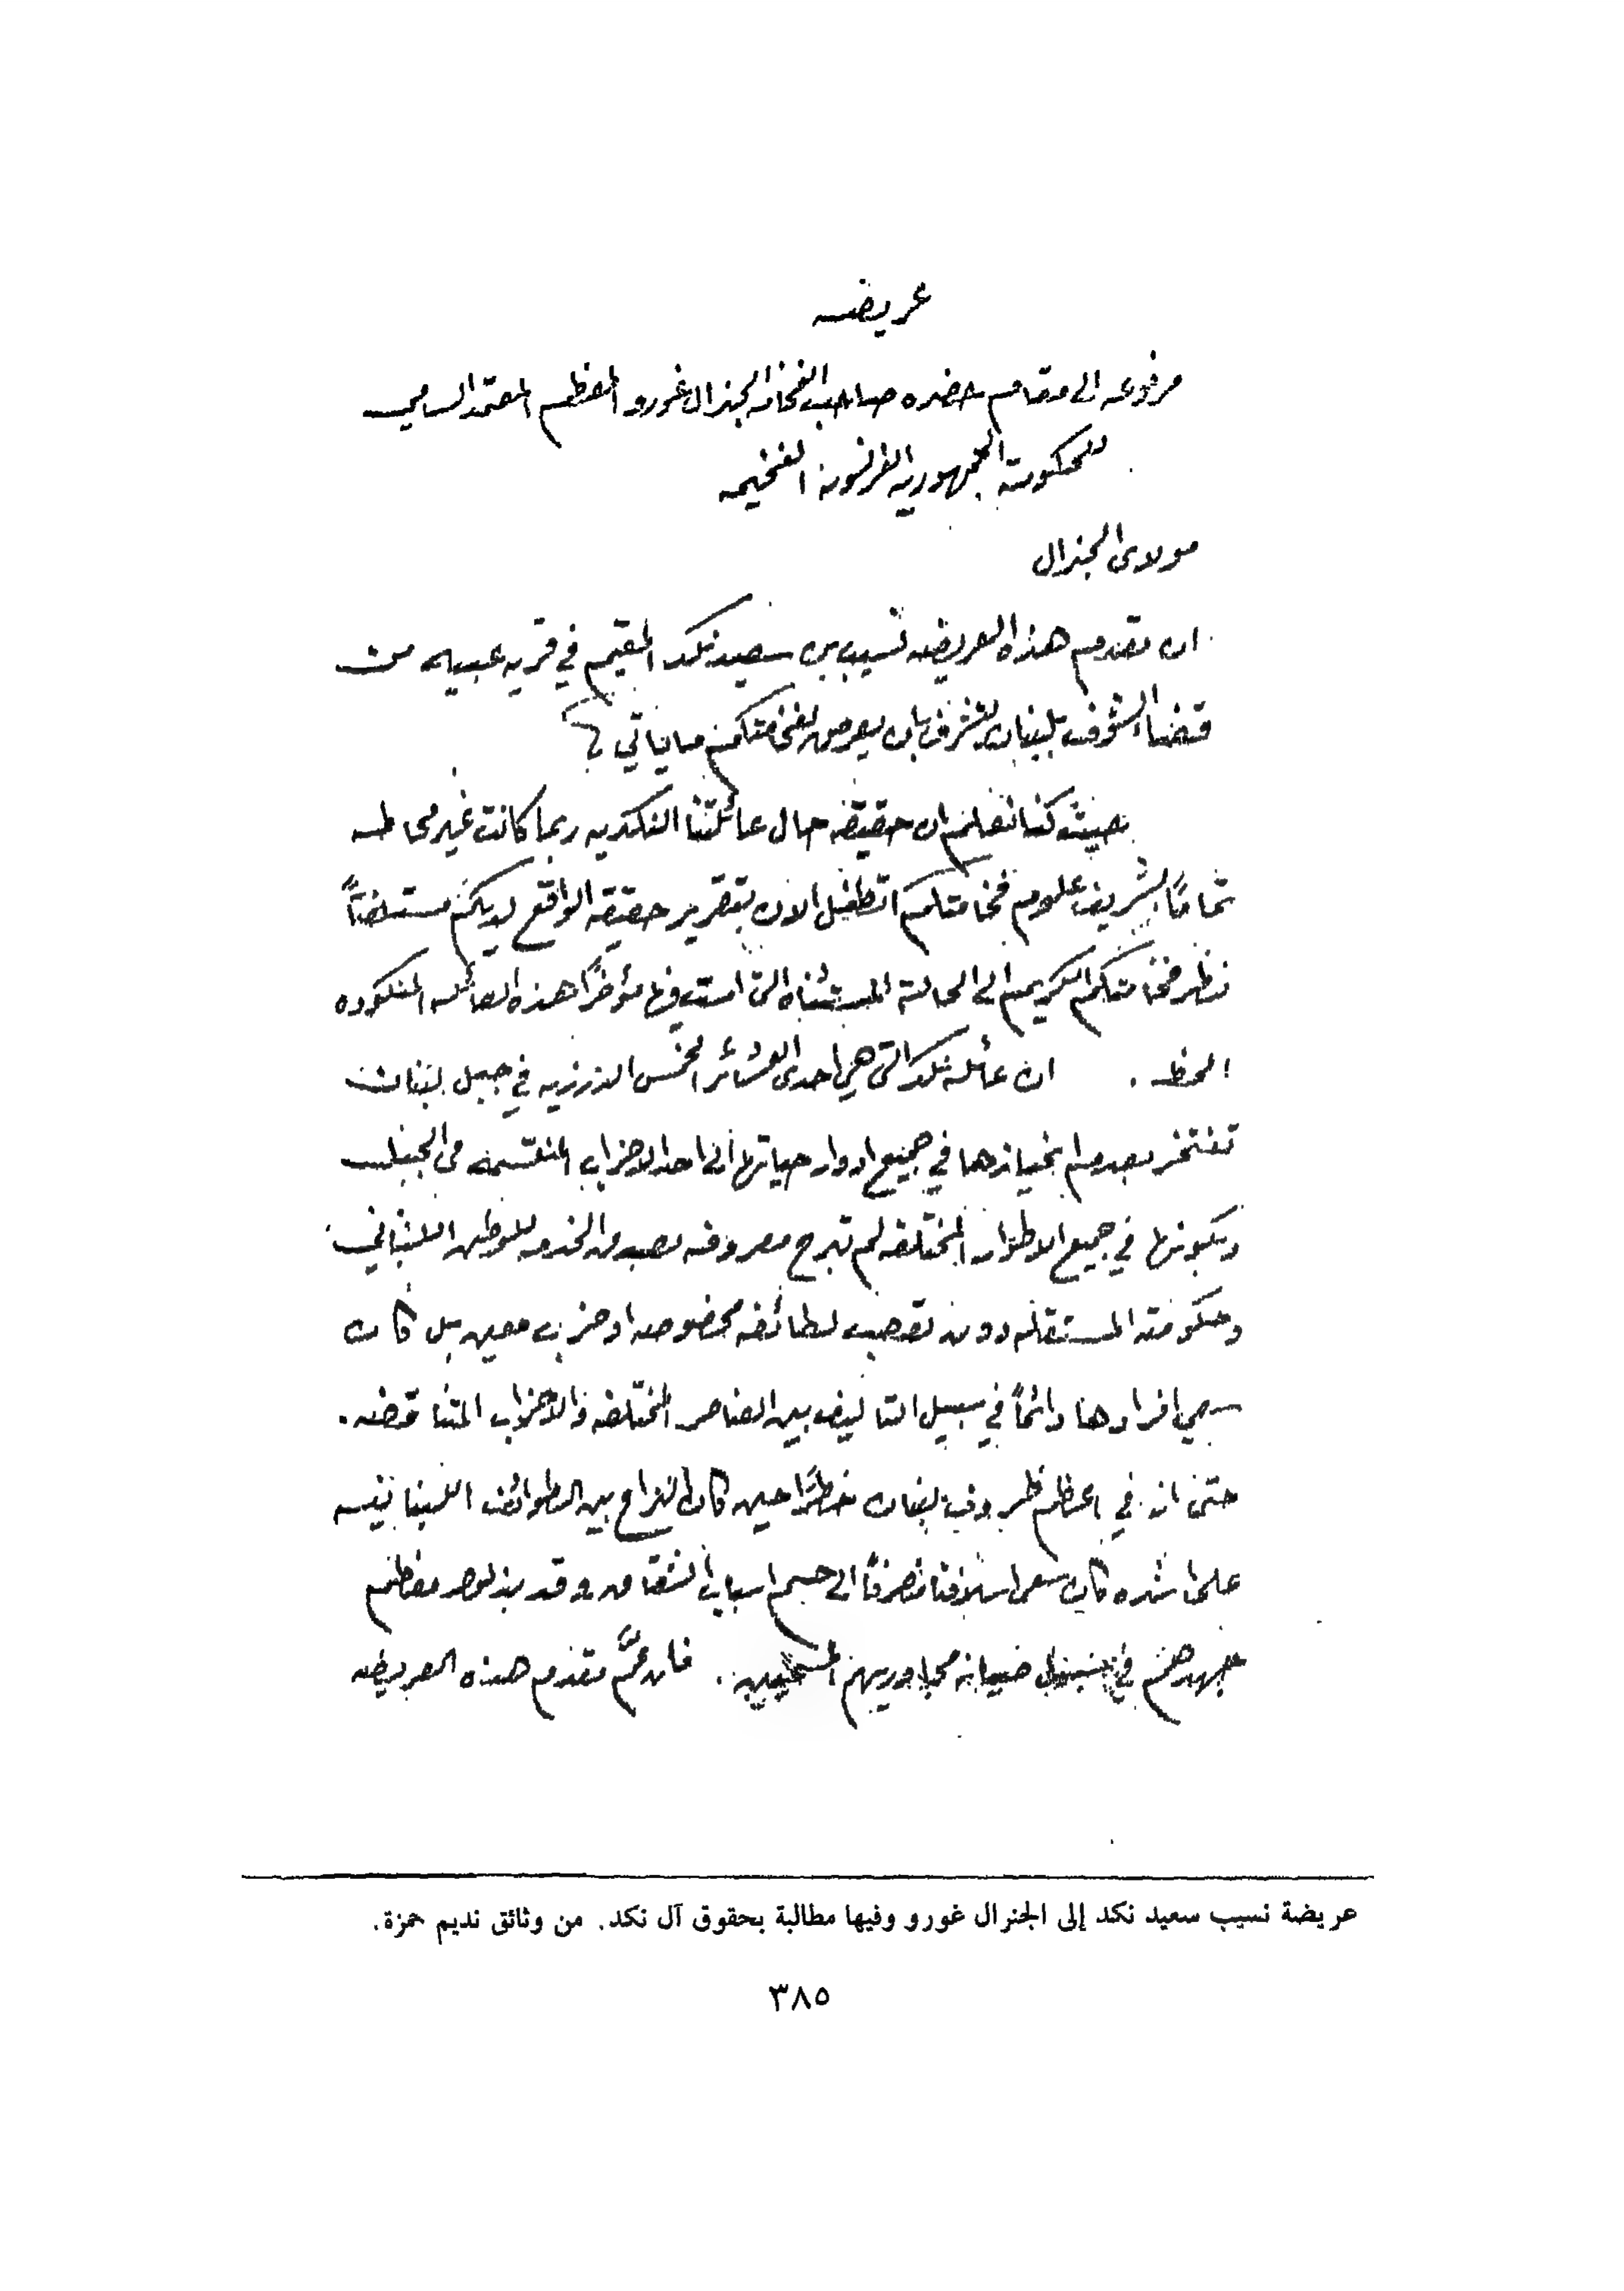 عريضه
مرفوعه الى مقام حضره صاحب الفخامه الجنرال غورو المعظم المعتمد السامي
للحكومة الجمهوريه الفرنسويه الفخيمه
مولاى الجنرال
ان مقدم هذه العريضه نسيب بن سعيد نكد المقيم في قريه عبيه من
قضاء الشوف بلبنان يتشرف بان يعرض لفخامتكم ما يأتي
بحيث كنا نعلم ان حقيقة حال عائلتنا النكديه ربما كانت غير محاطه
تمامًا بشريف علوم فخامتكم اتطفل الان بتقرير حقيقة الواقع لديكم مستلفتاً
نظر فخامتكم الكريم الى الحالة المستثناه التى استهدفتها مؤخرًا هذه العائله المنكوده
الحظ . ان عائلة نكد التى هي احدى العشائر الخمس الدرزيه في جبل لبنان
تفتخر بعدم انحيازها في جميع ادوار حياتها الى احد الاحزاب المنقسمه فى الجبل
وبكونها في جميع الاطوار المختلفه لم تبرح معروفه بصدق الخدمه للوطن اللبناني
وحكومته المستقله دون تعصب لطائفه مخصوصه او حزب معين بل كان
سعي افرادها دائماً في سبيل التاليف بين العناصر المختلفه والاحزاب المتناقضه .
حتى انه في اعظم ظروف لبنان خطرًا حين كان النزاع بين الطوائف اللبنانيه
على اشده كان سعى اسلافنا منصرفًا الى حسم اسباب الشقاق وقد بذلوا معظم
جهدهم في سبيل صيانة مجاوريهم المسيحيين . فان عمَّ مقدم هذه العريضه
عريضة نسيب سعيد نكد إلى الجنرال غورو وفيها مطالبة بحقوق آل نكد. من وثائق نديم حمزة.
٣٨٥